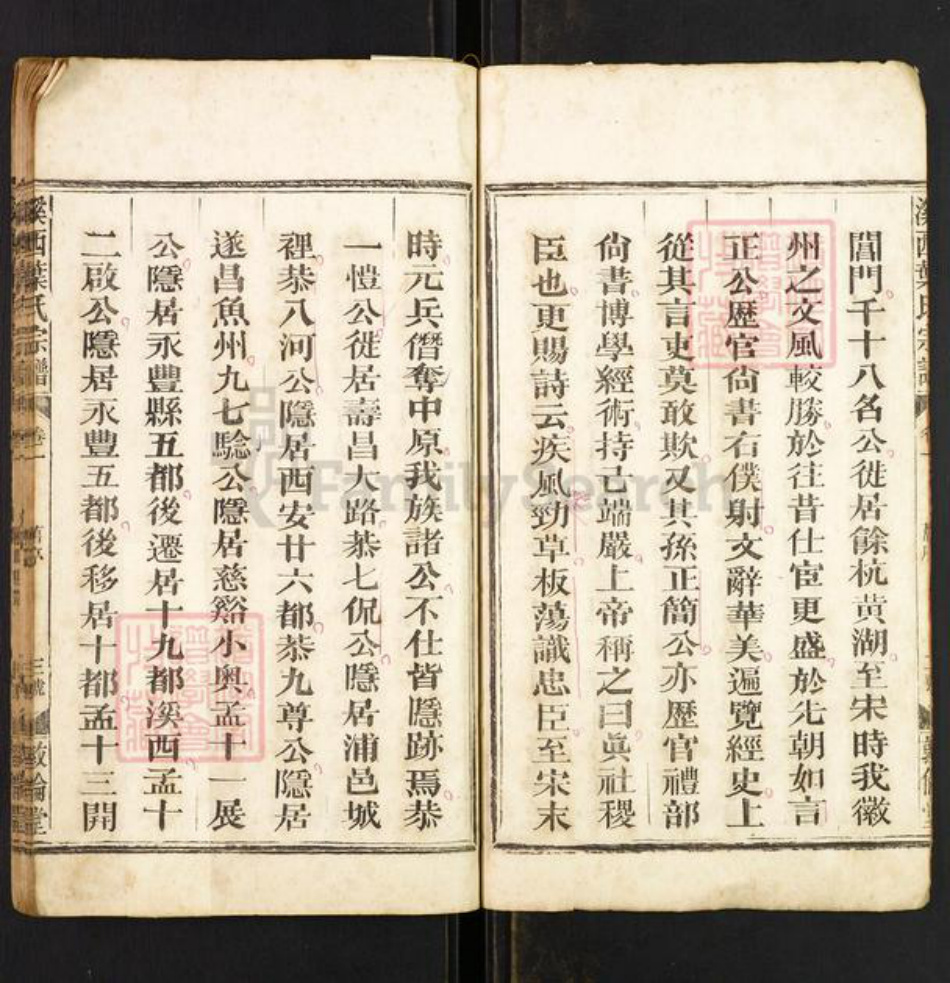 閶門千十八名公徙居餘杭黃湖至宋時我徽
州之文風較勝於往昔仕宦更盛於先朝如言
正公歷官尚書右僕射文辭華美遍覽經史上
從其言吏莫敢欺又其孫正簡公亦歷官禮部
尚書博學經術持己端嚴上帝稱之曰眞社稷
臣也更賜詩云疾風勁草板蕩識忠臣至宋末
時元兵僭奪中原我族諸公不仕皆隱跡焉恭
一愷公徙居壽昌大路恭七侃公隱居浦邑城
裡恭八河公隱居西安廿六都恭九尊公隱居
遂昌魚州九七騐公隱居慈谿小奥孟十一展
公隱居永豐縣五都後遷居十九都溪西孟十
二啟公隱居永豐五都後移居十都孟十三開
溪西葉氏宗譜 卷一 三號 敦倫堂
FamilySearch